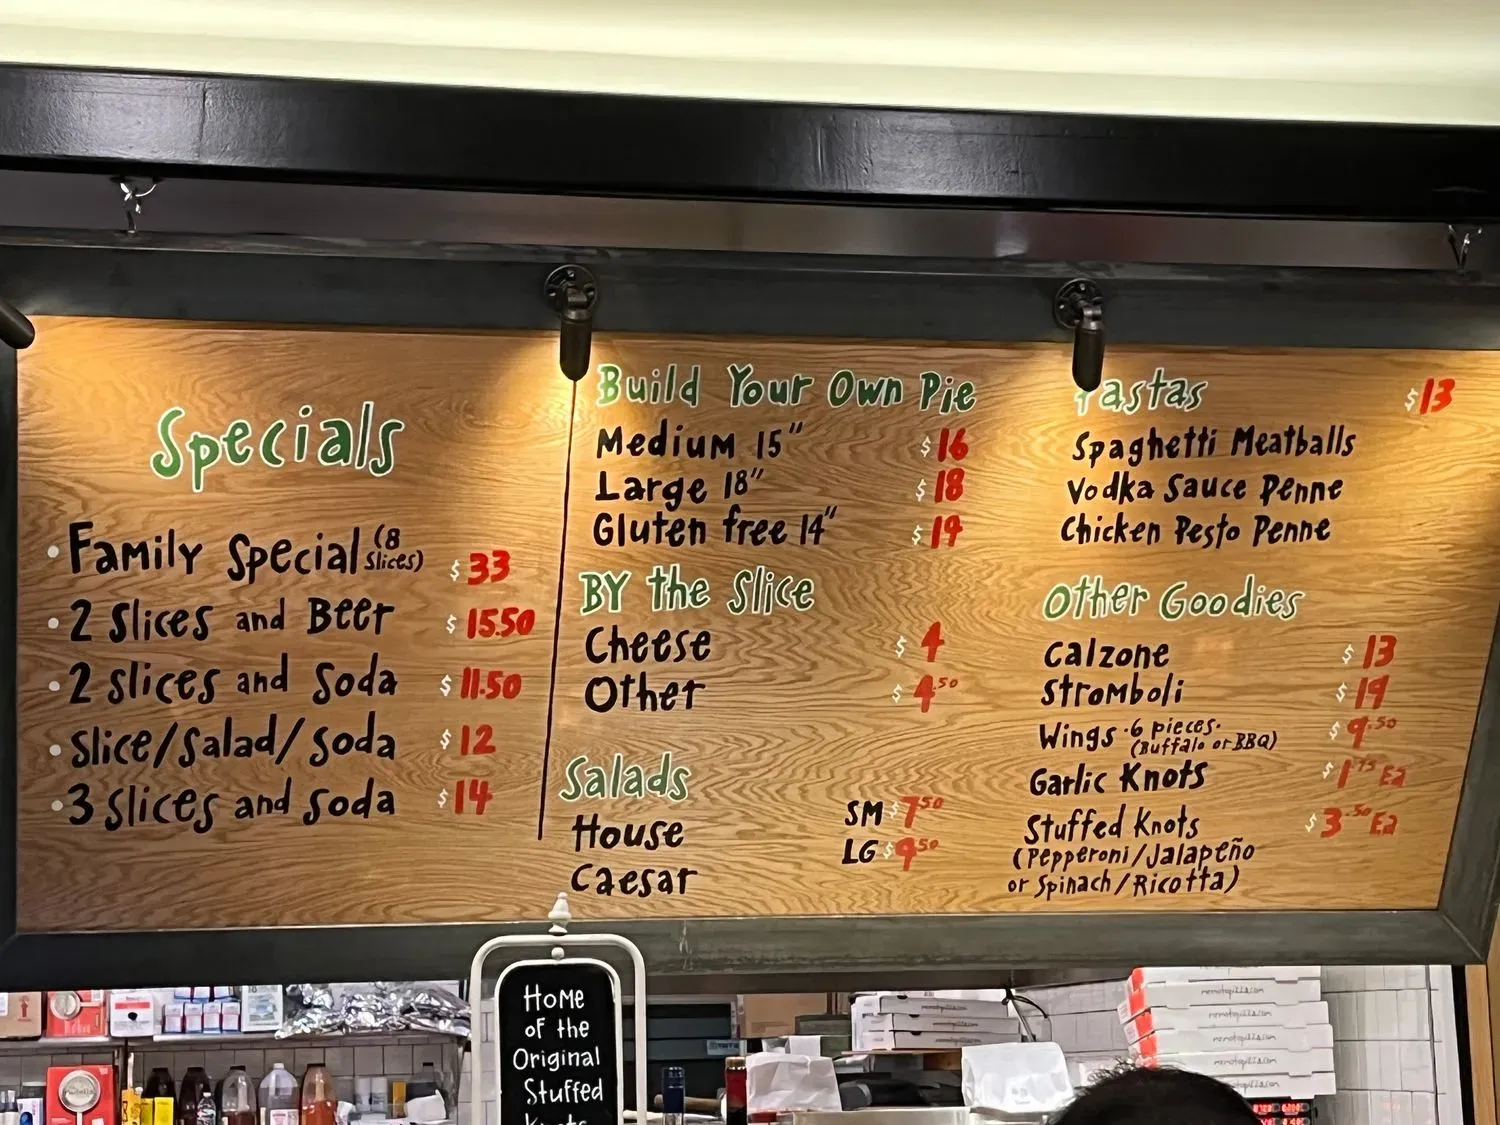 Specials
• Family Special (8 Slices) $33
• 2 Slices and Beer $15.50
• 2 Slices and Soda $11.50
• Slice/Salad/Soda $12
• 3 Slices and Soda $14
Build Your Own Pie
Medium 15" $16
Large 18" $18
Gluten free 14" $19
BY the Slice
Cheese $4
Other $4.50
Salads
House SM $7.50
Caesar LG $9.50
Pastas $13
Spaghetti Meatballs
Vodka Sauce Penne
Chicken Pesto Penne
Other Goodies
Calzone $13
Stromboli $19
Wings · 6 pieces · $9.50
(Buffalo or BBQ)
Garlic Knots $1.75 Ea
Stuffed Knots $3.50 Ea
(Pepperoni/Jalapeño
or Spinach/Ricotta)
Home
of the
Original
Stuffed
Knots